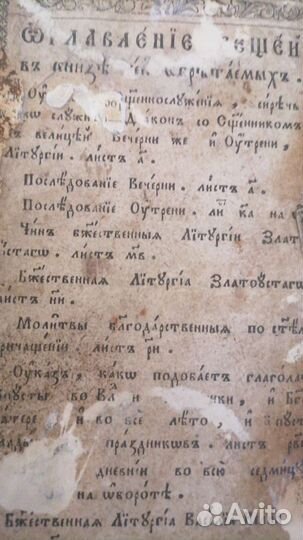 Ѡглавле́нїе веще́й
въ книзѣ сей ѡбрѣтаемыхъ.
сщ҃еннослꙋженїѧ, сирѣчь
слꙋжи Дїаконъ со Сщ҃енникомъ
въ вели́цѣй Вечерни же и Оу҆трени,
Лїтꙋргїи. листъ а҃.
Послѣдованїе Вечерни. листъ а҃.
Послѣдованїе Оу҆трени. ли ка на
Чинъ бж҃ественныѧ Лїтꙋргїи Злато
ꙋстагѡ. листъ мв҃.
Бж҃ественнаѧ Лїтꙋргїа Златоꙋстагѡ
листъ ни҃.
Молитвы благодарственныѧ по ст҃ѣ
причащенїи. листъ ри҃.
Оу҆казъ, какѡ подобаетъ глагола
пꙋсты во Вл и чки, и Бг
и во все лѣто, и пꙋст
праздникѡвъ. листъ
дневнїи во всю седмиц
на ѡборотѣ.
Бж҃ественнаѧ Лїтꙋргїа
Avito